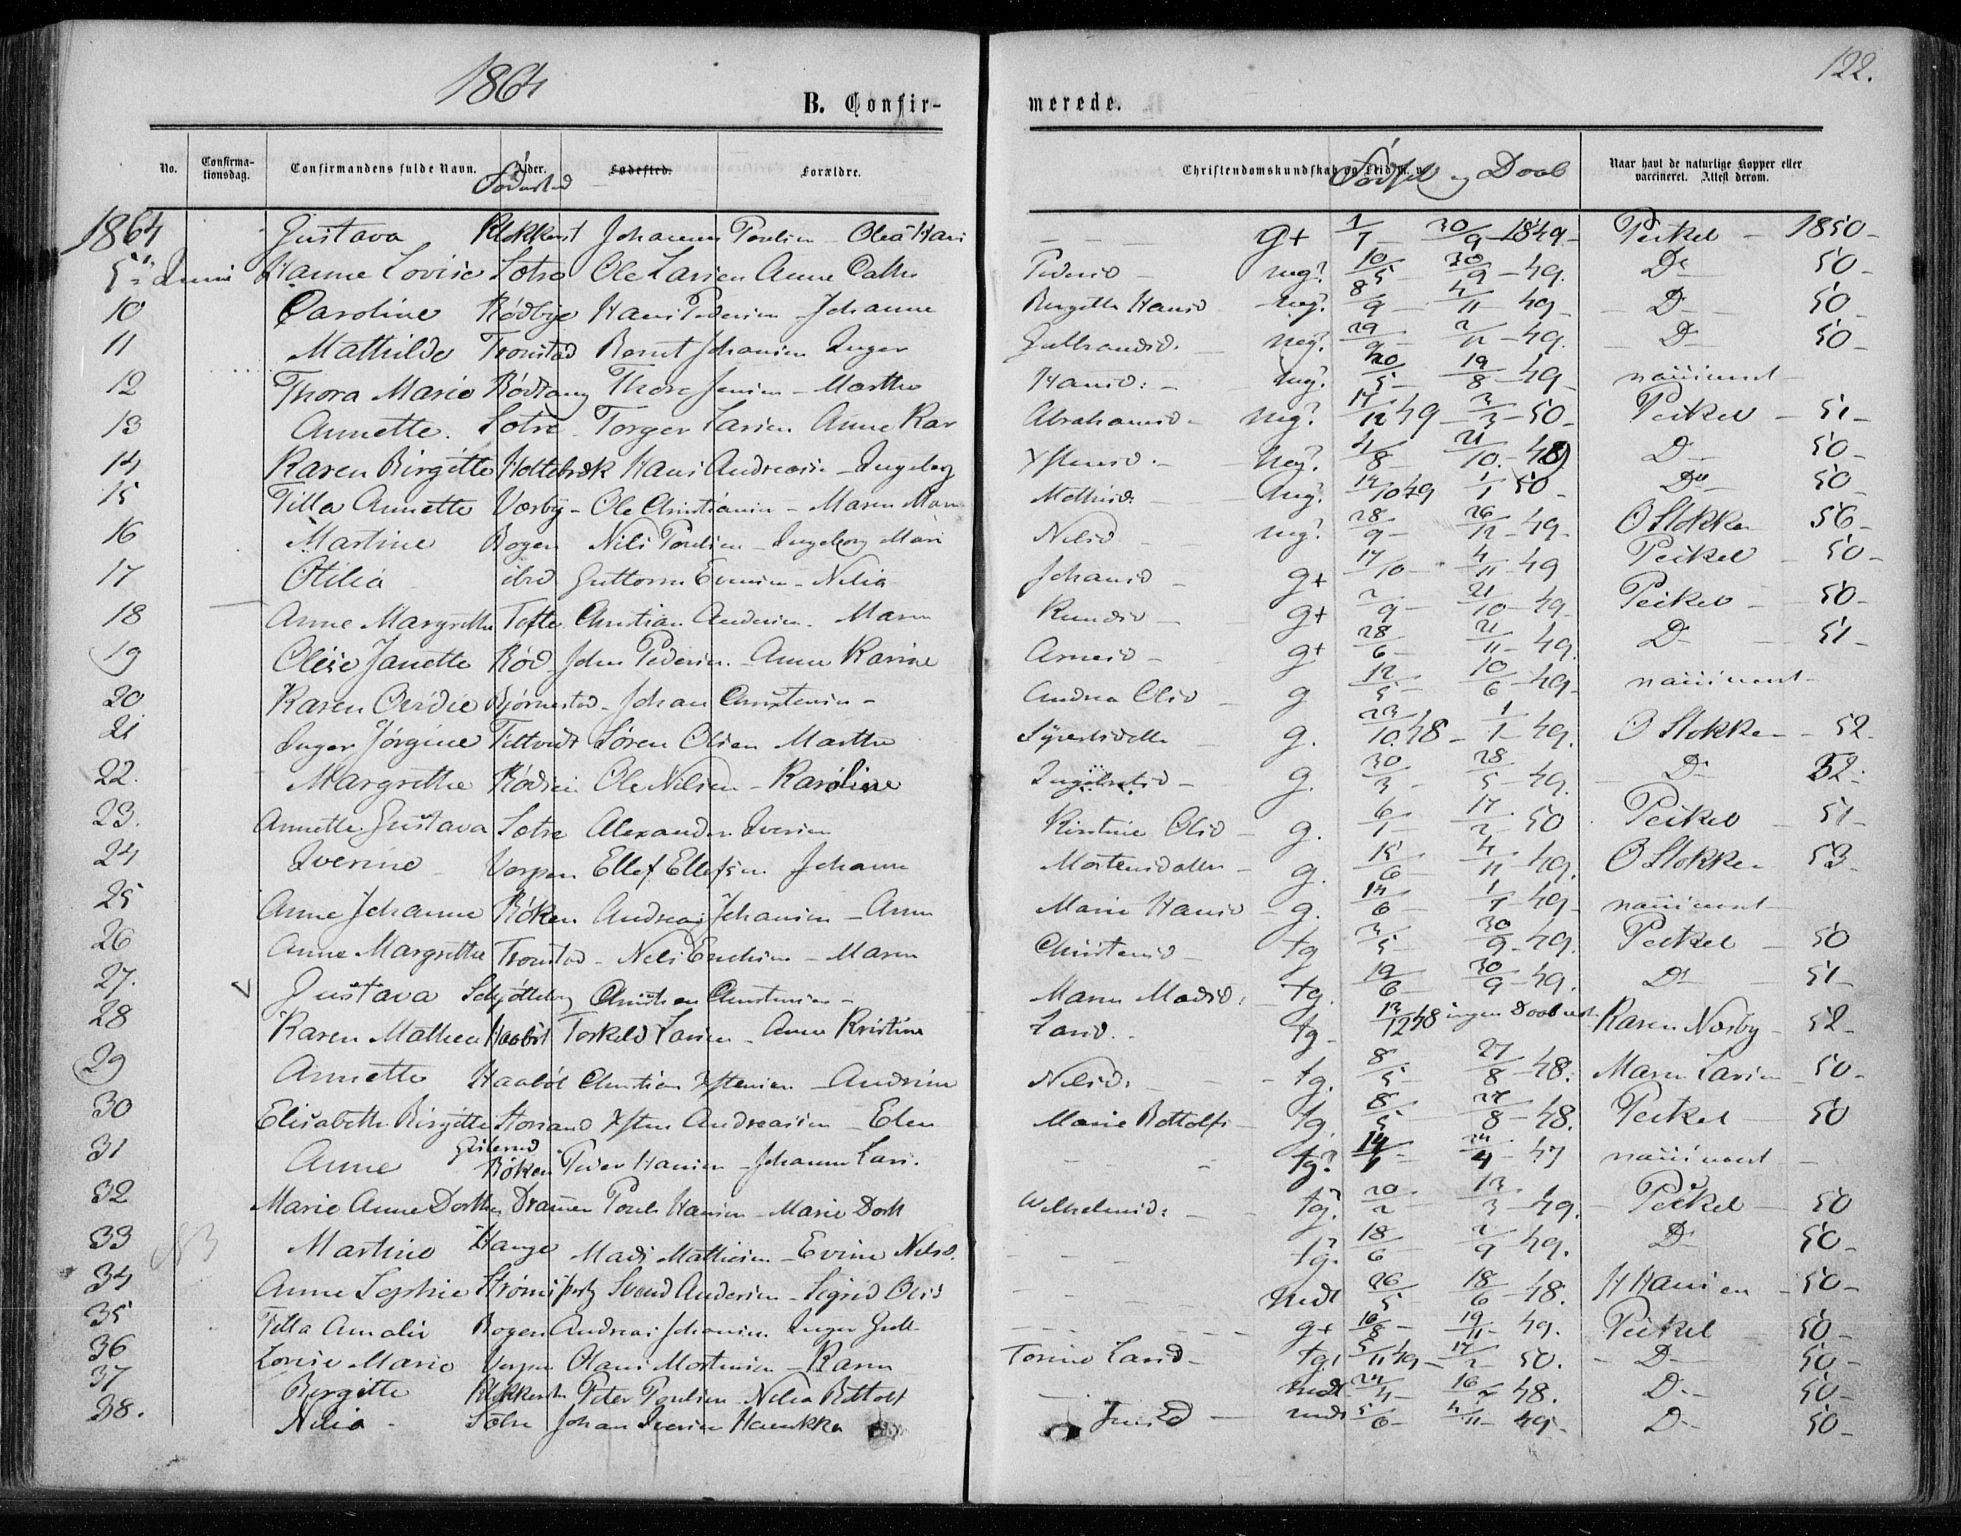 1864
122.
B. Confir- merede.
No. Confirmationsdag. Confirmandens fulde Navn. Alder. Fødested Fødested. Forældre. Christendomskundskab og Flid Fødsel og Daab Naar havt de naturlige Kopper eller vaccineret. Attest derom.
1864 Gustava Klokkerst Johannes Poulsen - Olea Hans g+ 1/7 30/9 1849 - Peikel - 1850 -
5te Juni Hanne Lovise Sætre Ole Larsen Anne Cathr Pedersd - mg? 10/5 - 30/9 - 49. Do 50 -
10 Caroline Rødbye Hans Pedersen - Johanne Birgitte Hansd - mg. 8/9 - 4/11 - 49 - D - 50 -
11 Mathilde Tronstad Bernt Johansen Inger Gulbrandsd. - mg? 29/9 - 2/12 - 49. - D - 50 -
12 Thora Marie Rødtang Thore Jensen - Marthe Hansd. - mg? 20/5 - 19/8 - 49 - vaccineret -
13 Annette. Sætre - Torger Larsen Anne Kar Abrahamsd - mg? 17/12 49 - 3/3 - 50 - Peikel - 51 -
14 Karen Birgitte Holtebræk Hans Andreasen - Ingeborg Ystensd. - mg? 4/8 - 21/10. - 48) D - 50 -
15 Tilla Annette Værby - Ole Christiansen - Maren Mari Mathisd. - mg? 14/10 49 1/1 50 - Do 50 -
16 Martine Bogen Nils Poulsen - Ingeborg Mari Nilsd - mg? 28/9 - 26/12 - 49 - O Stokken 56 -
17 Otilia ibid Guttorm Evensen - Nilia Johansd - g+ 17/10 - 4/11 - 49 Peikel - 50 -
18 Anne Margrethe Tofte Christian Andersen. Maren Knudsd - g+ 2/9 - 21/10 - 49 - Peikel - 50 -
19 Olise Janette Rød - John Pedersen - Anne Karine Arnesd - g+ 28/6 - 21/11 - 49. D - 51 -
20 Karen Bjørnestad - Johan Christensen - Andrea Olsd - g 12/5 - 10/6 - 49 - vaccineret -
21 Inger Jørgine Tiltvedt Søren Olsen Marthe Syvertsdatter - g. 23/10. 48 - 1/1 - 49. O Stokken - 52.
22. Margrethe Rødsen Ole Nilsen - Karoline - g. 30/3 - 28/5 - 49. - D - 52 -
23. Annette Gustava Sætre Alexander Iversen Kirstine Olsd - g. 6/1 - 17/2 - 50 Peikel - 51 -
24 Iverine - Verpen Ellef Ellefsen Johanne Mortensdatter - g. 15/6 - 4/11 - 49. O Stokken - 53 -
25 Anne Johanne Røken Andreas Johansen - Anne Marie Hansd - g. 14/6 - 1/7 - 49 - vaccineret -
26 Anne Margrethe Tronstad - Nils Erichsen - Maren Christensd - tg 3/5 - 30/9 - 49. Peikel - 50
27. Gustava Schjøtteberg Christian Christensen - Maren Madsd. tg. 19/6 - 30/9 - 49. D - 51 -
28 Karen Mathea Haabøl Torkeld Larsen - Anne Kristine Larsd. - tg - 13/12 48 ingen Daab Karen Nærby - 52 -
29 Annette Haabøl Christian Ystensen - Andrine Nilsd. - tg. 8/5 - 27/8 - 48. Maren Larsen - 50 -
30 Elisabeth Birgitte Storsand Ysten Andreasen - Elen Marie Bottolfs - tg. 8/5 - 27/8 - 48. Peikel - 50
31 Anne Gisterud Røken Peder Hansen - Johanne Lars. tg? 14/1 - 24/4 - 47 vaccineret -
32 Marie Anne Dorthe Dramen Poul Hansen - Marie Dorth Wilhelmsd. - tg. 20/2 - 13/3 - 49. - Peikel - 50
33 Martine Hange Mads Mathisen - Evine Nilsd. tg. 18/6 2/9 - 49. D - 50 -
34 Anne Sophie Strømsberg Svend Andersen - Sigrid Olsd mdt 26/5 18/6 - 48. H Hansen - 50 -
35 Tilla Amalie Bogen Andreas Johansen. Inger Gulb g+ 16/8 - 19/11 - 49. Peikel - 50 -
36 Lovise Marie Verpen Olaus Mortensen - Karen Torine Larsd - tg. 5/11 49 - 17/2 - 50. - D - 50 -
37 Birgitte Klokkerst Peter Poulsen - Nilia Bottolf mdt 24/4 - 16/7 - 48. D - 50 -
38. Nilia - Sætre Johan Iversen Henrikke Jensd - mdt 5/6 - 4/11 - 49 - D - 50 -